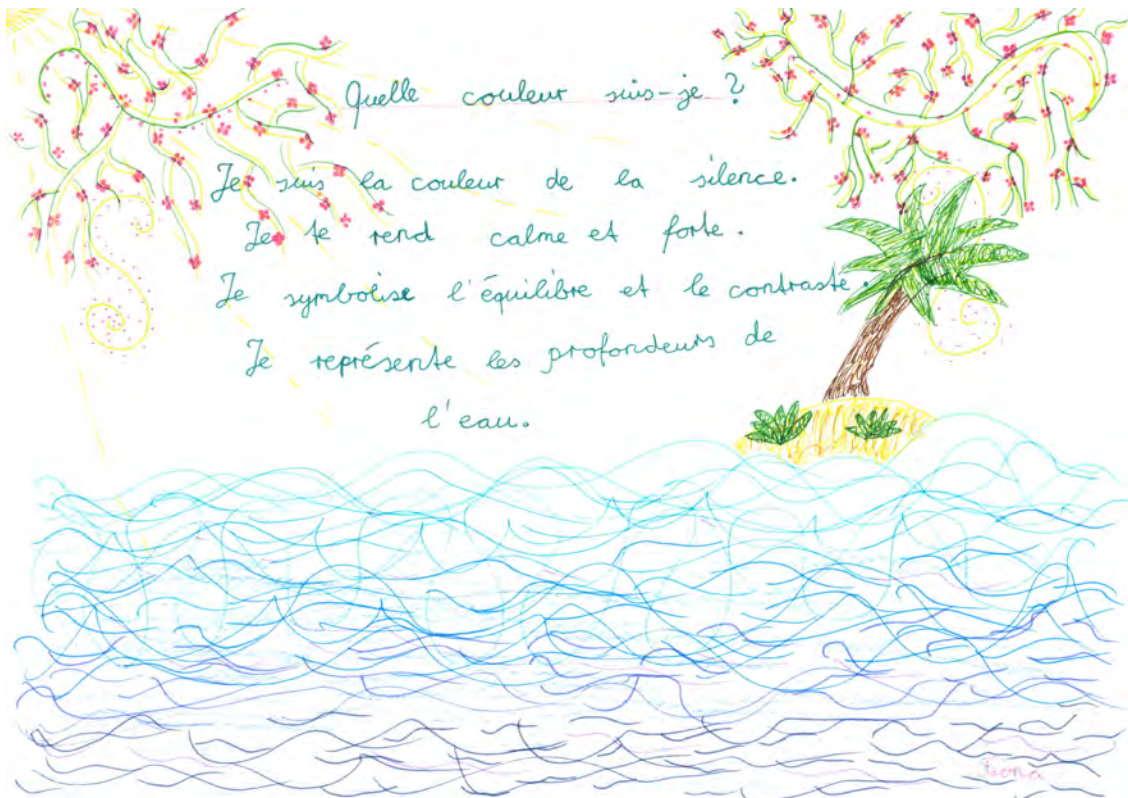 Quelle couleur suis-je ?
Je suis la couleur de la silence.
Je te rend calme et forte.
Je symbolise l'équilibre et le contraste.
Je représente les profondeurs de
l'eau.